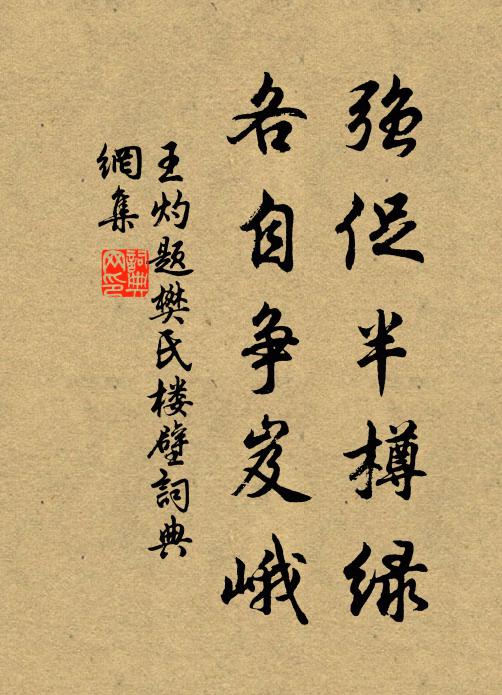 强促半樽绿
各自争岌峨
王灼题樊氏楼壁詞典
網集
詞典
网印